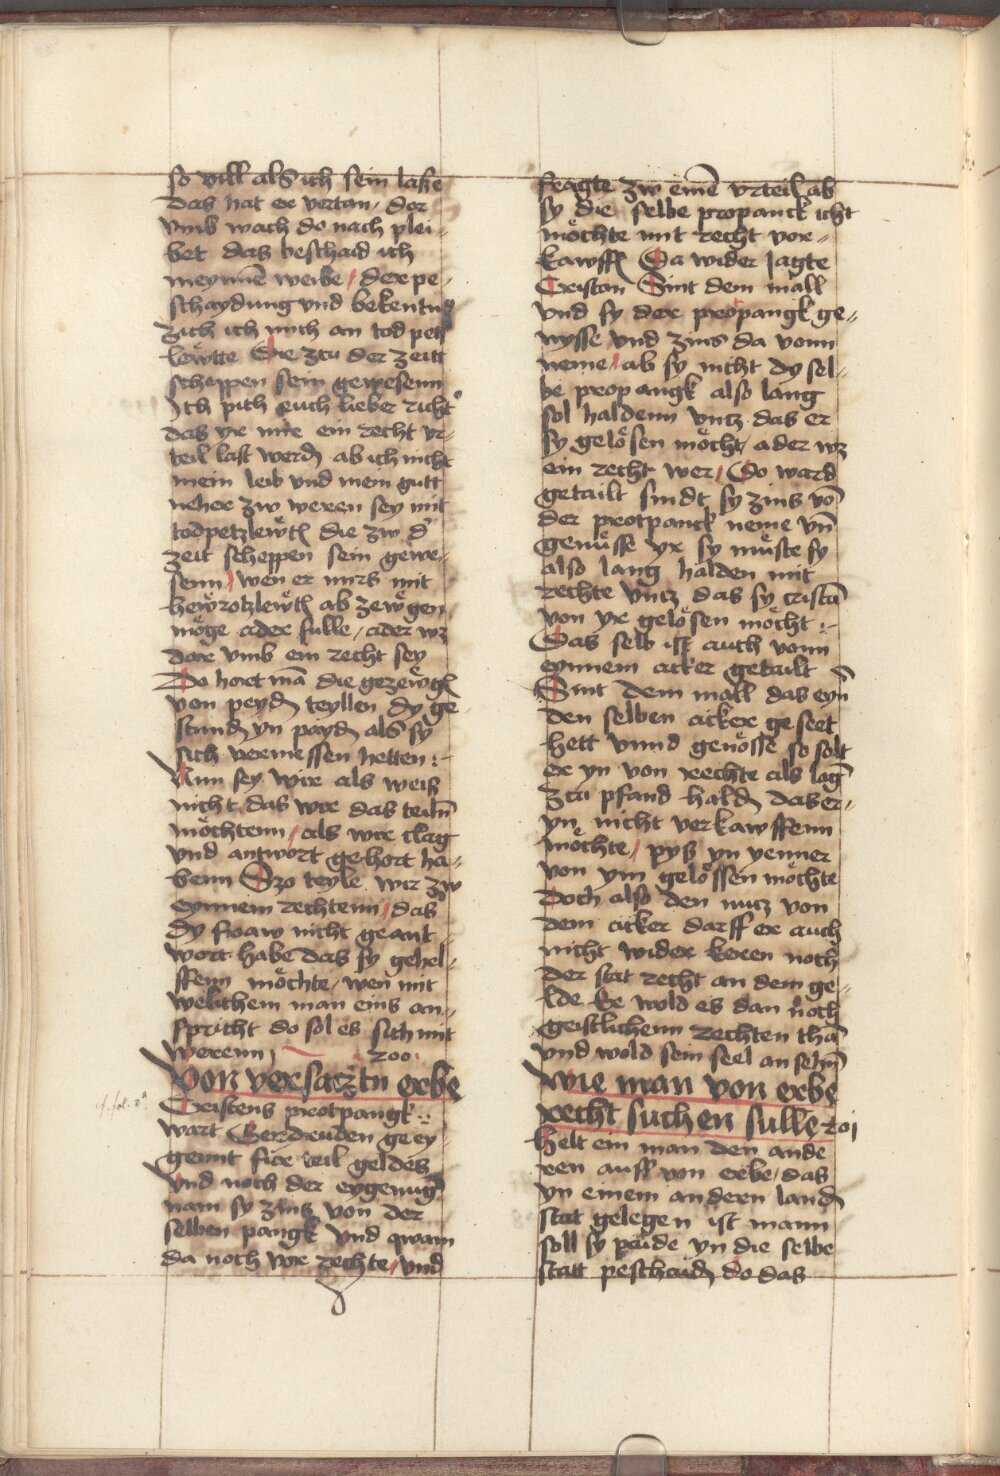 so vill als ich sein laße
das hat er vertan / dor
vmb wach do nach plei-
bet das beschaid ich
meynnē weibe / der pe-
schaydung vnd bekentnuß
zich ich mich an tod petz
lewtte Die zcu der zceitt
scheppen sein gewesenn
Ich pith euch lieber richt'
das yr mir ein recht vr-
teil last werdn̄ ab ich nicht
mein leib vnd mein gutt
neher zw weren sey mit
todpetzlewtn̄ die zw d'
zeit scheppen sein gewe-
senn / wen er mirs mit
hewrotzlewtn̄ ab zewgen
möge ader sulle / ader wz
dar vmb ein recht sey
Do horet mā die gezewgn̄
von peydn̄ teyllen dy ge
stundn̄ yn paydn̄ als sy
sich vermessen hetten :-
Nun sey wir als weiß
nicht das wir das teiln̄
möchtenn / als wir clag
vnd antwort gehort ha-
benn Szo teyle wir zw
eynnem rechtenn / das
dy fraw nicht geant-
wort habe das sy gehel-
ffenn möchte / wen mit
welichem man eins an-
spricht do sol es sich mit
werenn / 200
Von versaztn erbe
Cristens protpangk :
wart Gerdruden geey-
gennt fire teil geldes
vnd noch der eygenung
nam sy zins von der
selben pangk vnd qwam
da noch vor rechte / vnd
fragte zw einē vrteil ab
sy die selbe propanck icht
möchte mit recht vor-
kawffn̄ Da wider sagte
Cristan Sint dem mall
vnd sy der propangk ge-
nysse vnd zins da vonn
neme / ab sy nicht dy sel-
be propangk also lang
sol haldenn vntz das er
sy gelösen möcht / ader wz
ein recht wer / Do ward
getailt sindt sy zins vō
der protpanck neme vn̄
genüsse yr sy müste sy
also lang halden mit
rechte vntz das sy cristā
von yr gelösen möcht :-
Das selb ist auch vonn
eynnem acker getailt
Sint dem mall das eyn̄
den selben acker geseet
hett vnnd genösse so solt
er yn von rechte als lāg
zcu pfand haldn̄ das er-
yn nicht verkawffenn
möchte / pys yn yenner
von ym gelössen möchte
Doch also den nutz von
dem acker darff er auch
nicht wider keren noch
der stat recht an dem ge-
lde Er wold es dan noch
geistlichenn rechten thā
vnd wold sein seel an sehn̄
Wie man von erbe
recht suchen sulle 201
Helt ein man den ande
ren auff von erbe / das
yn einem andern landn̄
stat gelegen ist mann
soll sy peide yn die selbe
statt peschaidn̄ do das
cf. fol. 2a